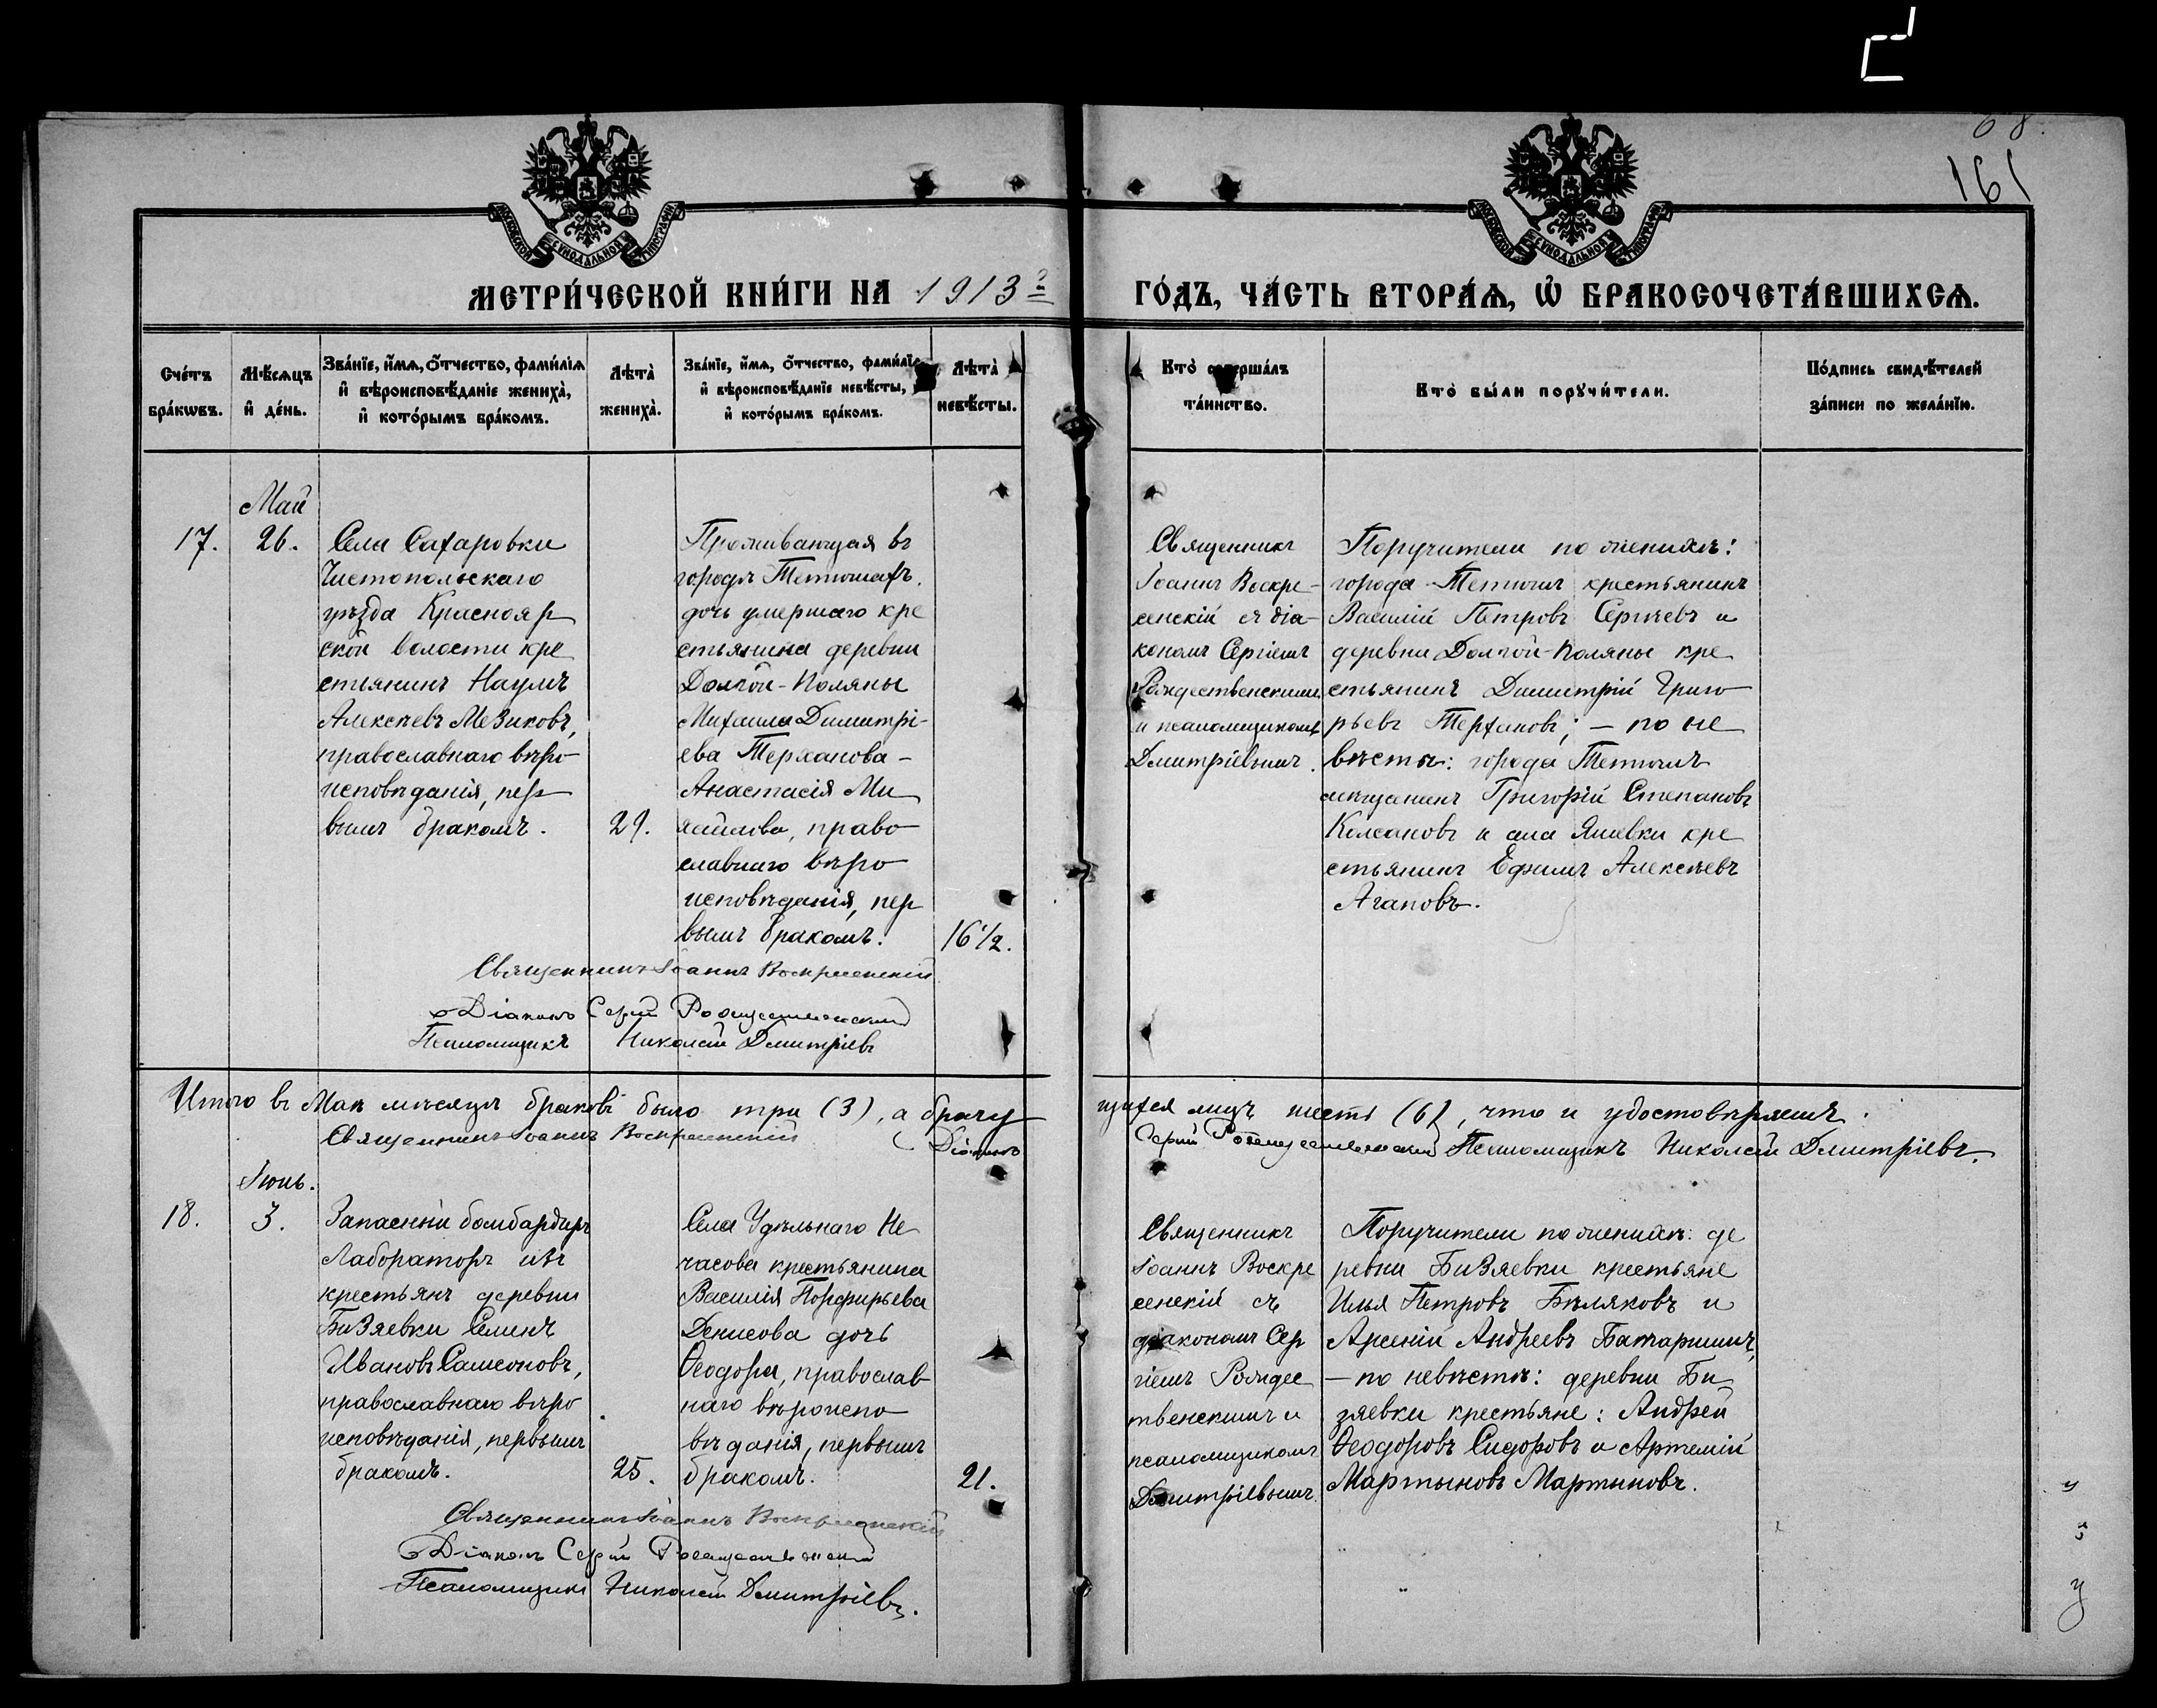 68.
161
МЕТРИ́ЧЕСКОЙ КНИ́ГИ НА 1913 г.
ГО́ДЪ, ЧА́СТЬ ВТОРА́Ѧ, Ѽ БРАКОСОЧЕТА́ВШИХСѦ.
МОСКОВСКОЙ СѴНОДАЛЬНОЙ ТИПОГРАФІИ
МОСКОВСКОЙ СѴНОДАЛЬНОЙ ТИПОГРАФІИ
Сче́тъ
бра́кѡвъ.
Мѣ́сяцъ
и҆ де́нь.
Зва́нїе, и҆́мѧ, ѻ҆́тчество, фами́лїѧ
и҆ вѣроисповѣ́данїе жениха̀,
и҆ кото́рымъ бра́комъ.
Лѣта̀
жениха̀.
Зва́нїе, и҆́мѧ, ѻ҆́тчество, фами́лїѧ
и҆ вѣроисповѣ́данїе невѣ́сты,
и҆ кото́рымъ бра́комъ.
Лѣта̀
невѣ́сты.
Кто̀ соверша́лъ
та́инство.
Кто̀ бы́ли порꙋчи́тели.
По́дпись свидѣ́телей
за́писи по жела́нїю.
Май
17.
26.
Села Сахаровки
Чистопольскаго
уѣзда Краснояр
ской волости кре
стьянинъ Наумъ
Алексѣевъ Мезиковъ,
православнаго вѣро
исповѣданія, пер
вымъ бракомъ.
29.
Проживающая въ
городѣ Тетюшахъ.
дочь умершаго кре
стьянина деревни
Долгой-Поляны
Михаила Димитрі-
ева Терханова -
Анастасія Ми
хаилова, право
славнаго вѣро
исповѣданія, пер
вымъ бракомъ.
16 1/2.
Священникъ
Іоаннъ Воскре-
сенскій съ діа-
кономъ Сергіемъ
Рождественскимъ
и псаломщикомъ
Дмитріевымъ.
Поручители по женихѣ:
города Тетюшъ крестьянинъ
Василій Петровъ Сергѣевъ и
деревни Долгой-Поляны кре
стьянинъ Димитрій Григо
рьевъ Терханов; - по не
вѣстѣ: города Тетюшъ
мѣщанинъ Григорій Степановъ
Колсановъ и села Яшевки кре
стьянинъ Ефимъ Алексѣевъ
Агаповъ.
Священникъ Іоаннъ Воскресенскій
Діаконъ Сергій Рождественскій
Псаломщикъ Николай Дмитріевъ
Итого въ Маѣ мѣсяцѣ браковъ было три (3), а брачу
щихся лицъ шесть (6), что и удостовѣряемъ.
Священникъ Іоаннъ Воскресенскій Діаконъ
Сергій Рождественскій Псаломщикъ Николай Дмитріевъ.
Іюнь.
18.
3.
Запасный бомбардиръ
Лабораторъ изъ
крестьянъ деревни
Бизяевки Семенъ
Ивановъ Самсоновъ,
православнаго вѣро
исповѣданія, первымъ
бракомъ.
25.
Села Удѣльнаго Не
часова крестьянина
Василія Порфирьева
Денисова дочь
Ѳеодора, православ
наго вѣроиспо
вѣданія, первымъ
бракомъ.
21.
Священникъ
Іоаннъ Воскре
сенскій съ
діакономъ Сер
гіемъ Рождес
твенскимъ и
псаломщикомъ
Дмитріевымъ.
Поручители по женихѣ: де
ревни Бизяевки крестьяне
Илья Петровъ Бѣляковъ и
Арсеній Андреевъ Батаршинъ,
- по невѣстѣ: деревни Би
зяевки крестьяне: Андрей
Ѳеодоровъ Сидоровъ и Артемій
Мартыновъ Мартыновъ.
Священникъ Іоаннъ Воскресенскій
Діаконъ Сергій Рождественскій
Псаломщикъ Николай Дмитріевъ.